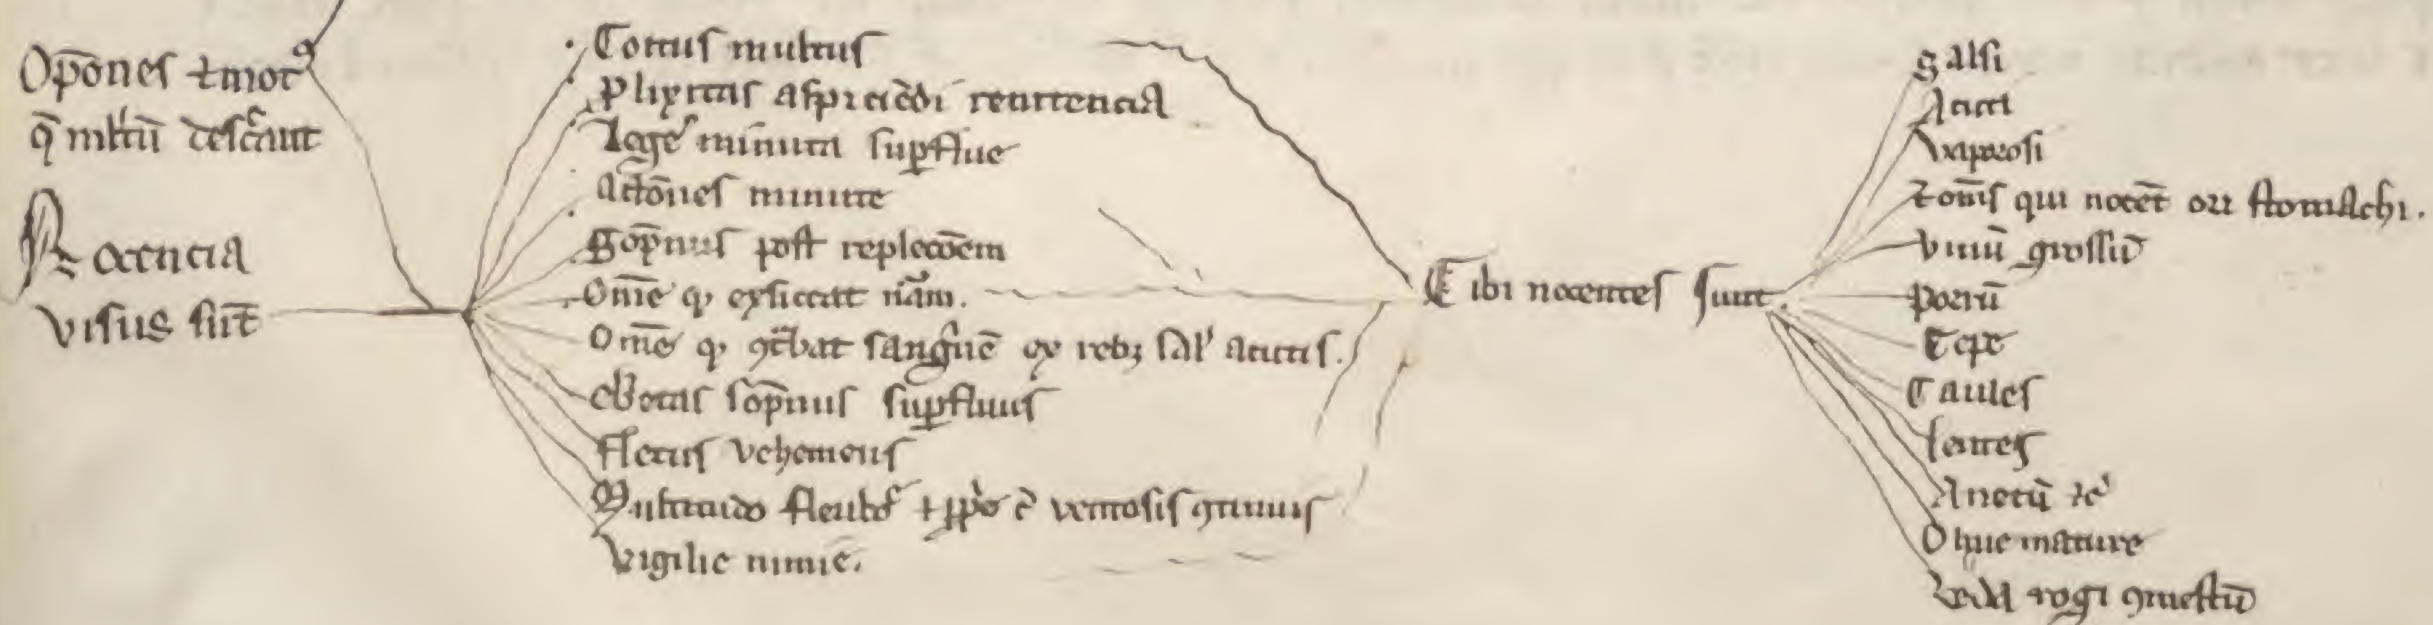 Op̄ones ⁊ mot⁹
q̄ mltū desc̄ant
Nocencia
visus sūt
Coitus multus
Plixitas aspiciēdi renitencia
Lege᷒ minuta supflue
Act̄ones minute
Sop̄nus post replecōem
Om̄e q̢ exsiccat nām.
Om̄e q̢ ꝯt̄bat sanguīē ex rebꝫ sal' acutis.
Ebetas sop̄nus supfluus
Fletus vehemens
Multitudo fleubo᷒ ⁊ pp̄o ē ventosis ꝯtinuis
Vigilie nimie.
Cibi nocentes sunt.
Salsi
Acuti
Vaporosi
⁊ om̄s qui nocēt ori stomachi.
Vinū grossū
Porrū
Cepe
Caules
lentes
Anetū ⁊c̄
Oliue mature